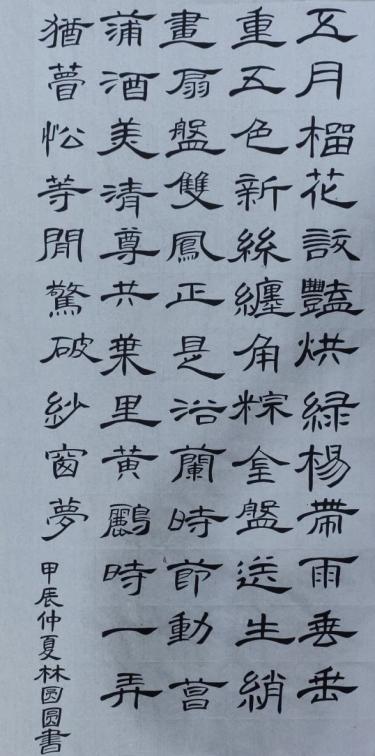 五月榴花訞豔烘綠楊帶雨垂垂
重五色新絲纏角粽金盤送生綃
畫扇盤雙鳳正是浴蘭時節動菖
蒲酒美清尊共葉里黃鸝時一弄
猶瞢忪等閒驚破紗窗夢
甲辰仲夏林圓圓書